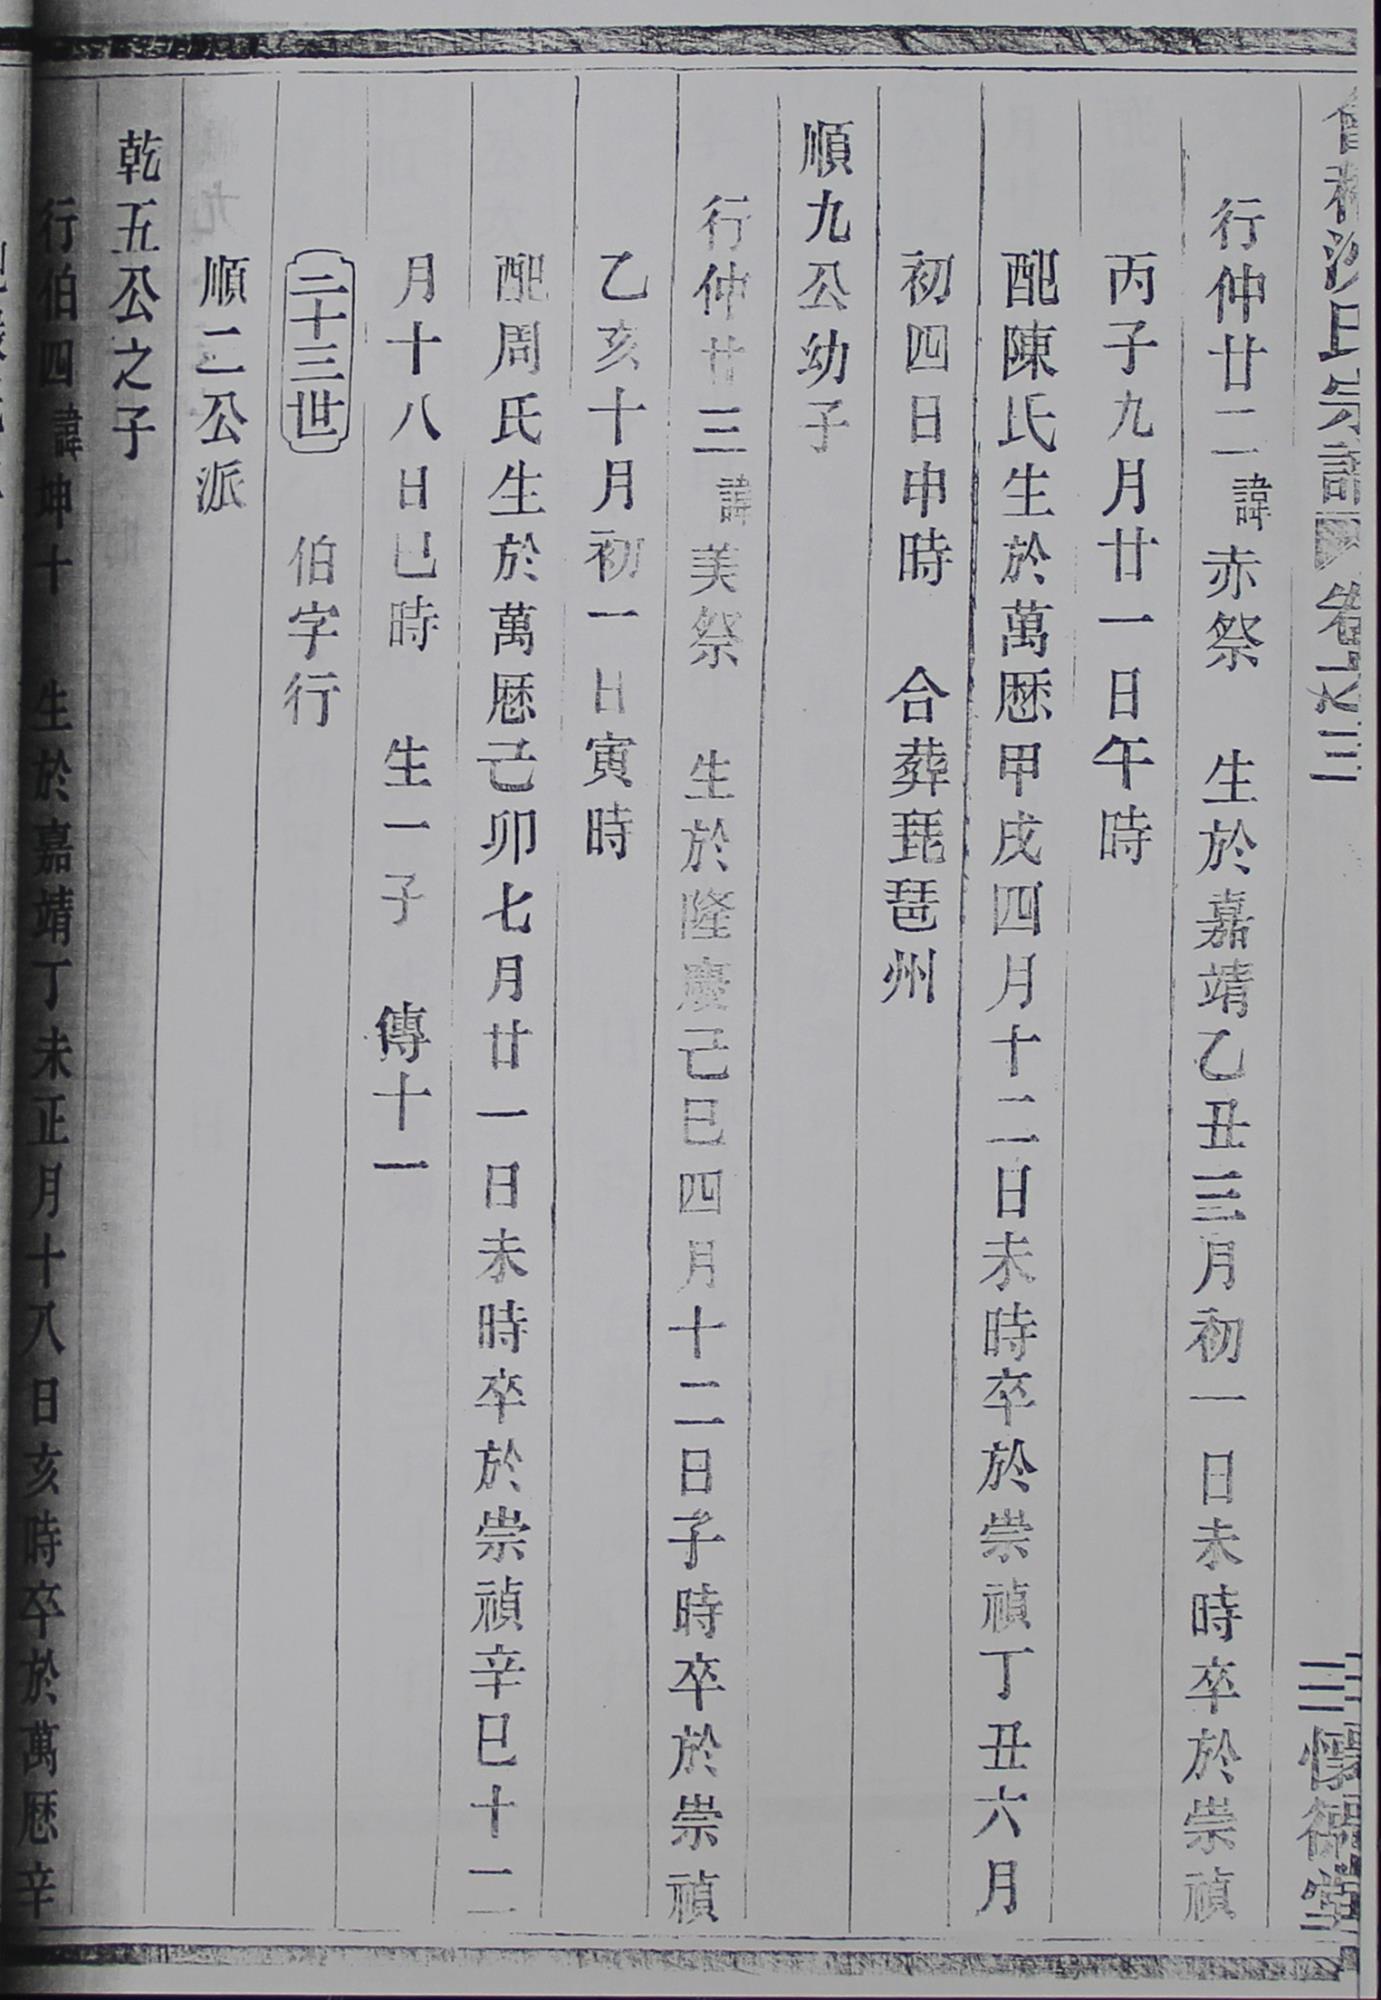 沙氏宗譜 卷之三
三 懷德堂
行仲廿二諱赤祭 生於嘉靖乙丑三月初一日未時卒於崇禎
丙子九月廿一日午時
配陳氏生於萬厯甲戌四月十二日未時卒於崇禎丁丑六月
初四日申時 合葬琵琶州
順九公幼子
行仲廿三諱美祭 生於隆慶己巳四月十二日子時卒於崇禎
乙亥十月初一日寅時
配周氏生於萬厯己卯七月廿一日未時卒於崇禎辛巳十二
月十八日巳時 生一子 傳十一
二十三世 伯字行
順二公派
乾五公之子
行伯四諱坤十 生於嘉靖丁未正月十八日亥時卒於萬厯辛